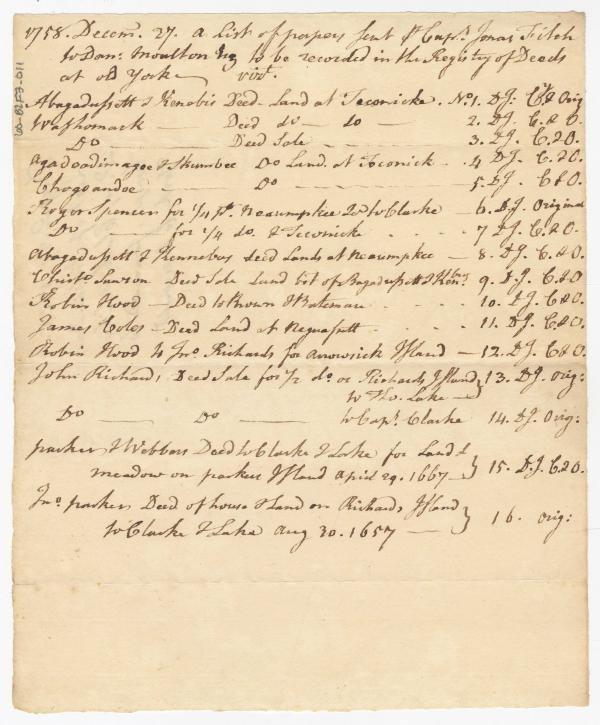 1758. Decem. 27. a List of papers sent pr Capt. Jonas Fitch
to Dan: Moulton Esq to be recorded in the Registry of Deeds
at old York — vizt.
Abagadussett & Kenebis Deed - Land at Teconicke . No. 1. D J. C & Orig
Washomack — Deed do — do — 2. D J. C. & O.
Do — Deed Sale — 3. D J. C. & O.
Agadoadimagoe & Skumbee Do Land. at Teconick - . 4 D J. C. & O.
Chogoandoe — Do — 5. D J. C & O.
Roger Spencer for 1/4 pt. Neaumpkee to Clarke — 6. D J. Original
Do — for 1/4 do. & Teconicke . . . . 7 D J. C. & O.
Abagadusett & Kennebas deed Lands at Neaumpkee — 8. D J. C. & O.
Christo. Lawson Deed Sale Land bot of Bagadusett & Kenebas. 9. D J. C & O
Robin Hood — Deed to Brown & Bateman . . . 10. D J. C & O.
James Coles — Deed Land at Neguasett . . . . 11. D J. C & O.
Robin Hood to Jno. Richards for Arrowsick Island — 12. D J. C & O.
John Richards Deed Sale for 1/2 do. or Richards Island } 13. D J. orig:
to Tho. Lake —
Do — Do — to Capt. Clarke 14. D J. Orig:
parker & Webbers Deed to Clarke & Lake for Land &
meadow on parkers Island April 29. 1667 — } 15. D. J. C. & O.
Jno. parkers Deed of house & Land on Richards Island
to Clarke & Lake Aug 30. 1657 — } 16. orig: